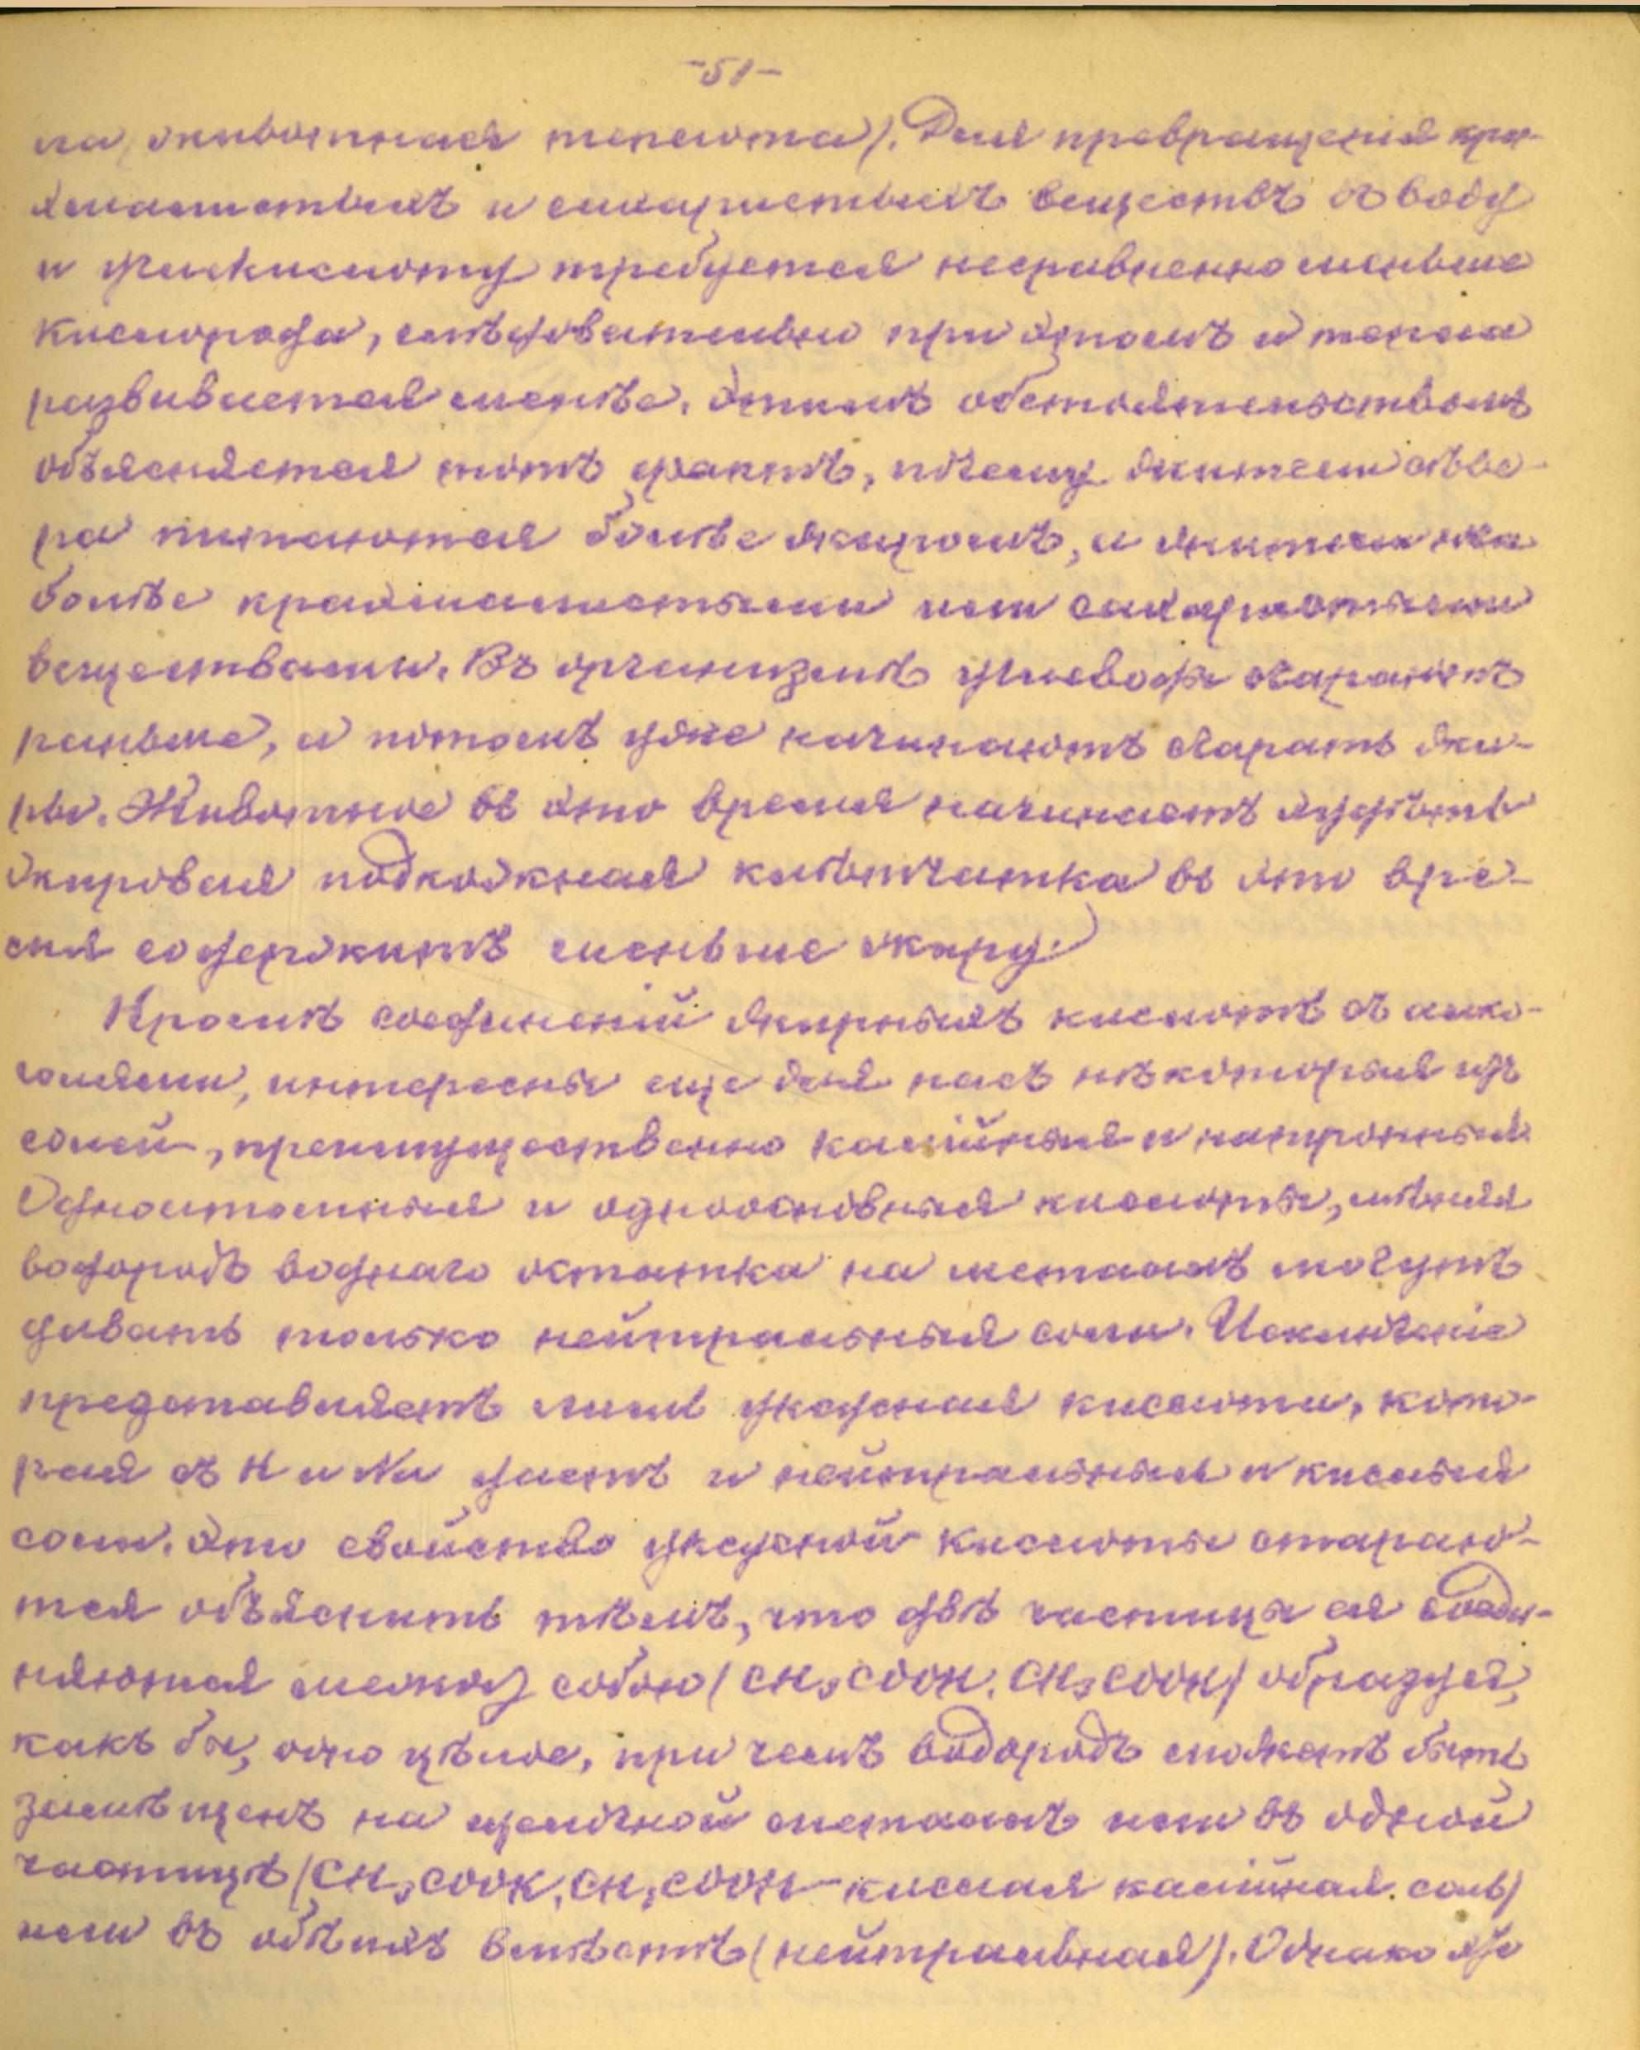 -51-
ла животная теплота). Для превращенія кра-
хмалистыхъ и сахаристыхъ веществъ въ воду
и углекислоту требуется несравненно меньше
кислорода, слѣдовательно при этомъ и тепла
развивается менѣе. Этимъ обстоятельствомъ
объясняется тотъ фактъ, почему жители сѣве-
ра питаются болѣе жиромъ, а жители юга
болѣе крахмалистыми или сахаристыми
веществами. Въ организмѣ углеводы сгараютъ
раньше, а потомъ уже начинаютъ сгарать жи-
ры. Животное въ это время начинаетъ худѣть
жировая подкожная клѣтчатка въ это вре-
мя содержитъ меньше жиру.)
Кромѣ соединеній жирныхъ кислотъ съ алко-
голями, интересны еще для насъ нѣкоторыя ихъ
солей, преимущественно калійныя и натронныя
Одноатомныя и одноосновныя кислоты, мѣняя
водородъ воднаго остатка на металлъ могутъ
давать только нейтральныя соли. Исключеніе
представляетъ лишь уксусная кислота, кото-
рая съ К и Na даетъ и нейтральныя и кислыя
соли. Это свойство уксусной кислоты стараю-
тся объяснить тѣмъ, что двѣ частицы ея соеди-
няются между собою (CH₃COOH. CH₃COOH) образуя,
какъ бы, одно цѣлое, при чемъ водородъ можетъ быть
замѣщенъ на щелочной металлъ или въ одной
частицѣ (CH₃COOK. CH₃COOH - кислая калійная соль)
или въ обѣихъ вмѣстѣ (нейтральная). Однако же